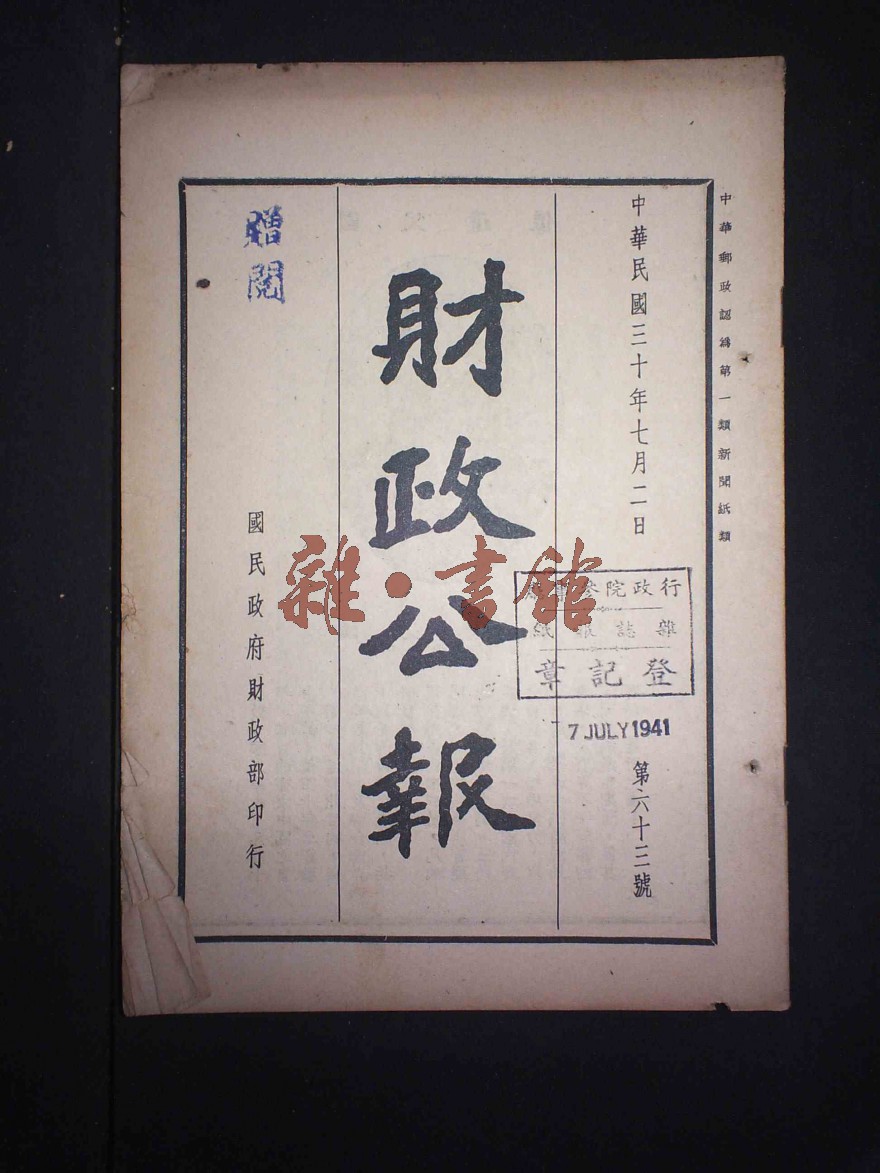 中華郵政認為第一類新聞紙類
中華民國三十年七月二日
第六十三號
行政院參事廳
雜誌報紙
登記章
7 JULY 1941
財政公報
國民政府財政部印行
贈閱
雜·書館